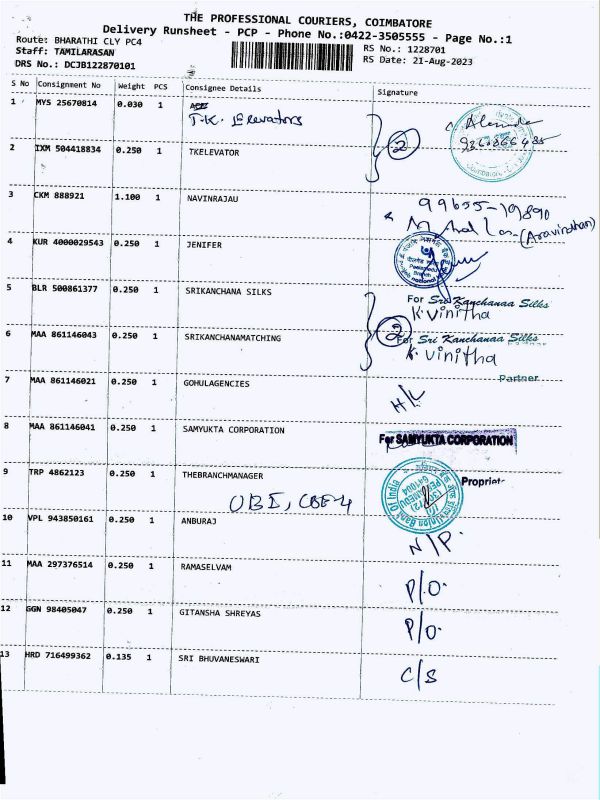 THE PROFESSIONAL COURIERS, COIMBATORE
Delivery Runsheet - PCP - Phone No.:0422-3505555 - Page No.:1
Route: BHARATHI CLY PC4
RS No.: 1228701
Staff: TAMILARASAN
RS Date: 21-Aug-2023
DRS No.: DCJB122870101
S No Consignment No Weight PCS Consignee Details Signature
1 MYS 25670814 0.030 1
T.K. Elevators
2
2 IXM 504418834 0.250 1 TKELEVATOR
3 CKM 888921 1.100 1 NAVINRAJAU
(Aravindhan)
4 KUR 4000029543 0.250 1 JENIFER
5 BLR 500861377 0.250 1 SRIKANCHANA SILKS
For Sri Kanchanaa Silks
K. Vinitha
2
6 MAA 861146043 0.250 1 SRIKANCHANAMATCHING
For Sri Kanchanaa Silks
K. Vinitha
Partner
7 MAA 861146021 0.250 1 GOHULAGENCIES
H/L
8 MAA 861146041 0.250 1 SAMYUKTA CORPORATION
For SAMYUKTA CORPORATION
9 TRP 4862123 0.250 1 THEBRANCHMANAGER
Propriet
UBI, CBE-4
Union Bank Of India
10 VPL 943850161 0.250 1 ANBURAJ
N/P.
11 MAA 297376514 0.250 1 RAMASELVAM
P/O.
12 GGN 98405047 0.250 1 GITANSHA SHREYAS
P/O.
13 HRD 716499362 0.135 1 SRI BHUVANESWARI
C/S